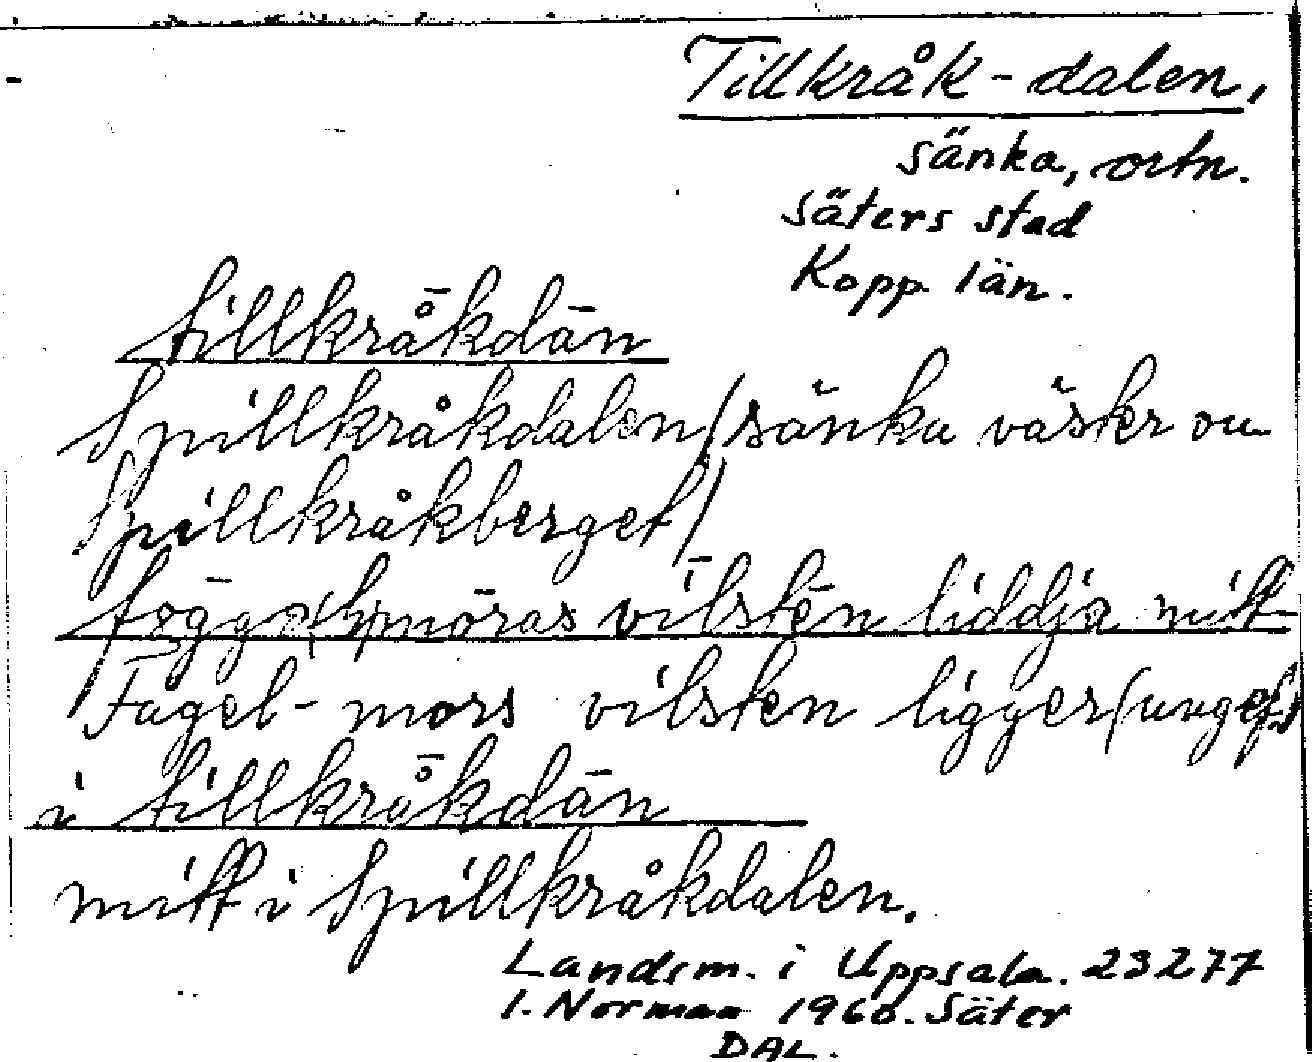 Tillkråk-dalen,
sänka, ortn.
Säters stad
Kopp län.
tillkrå̄kdān
Spillkråkdalen (sänka väster om
Spillkråkberget)
mōras vīlstēn liddja mitt
Fågel-mors vilsten ligger (ungefär
i tillkrå̄kdān
mitt i Spillkråkdalen.
Landsm. i Uppsala. 23277
I. Norman 1960. Säter
DAL.